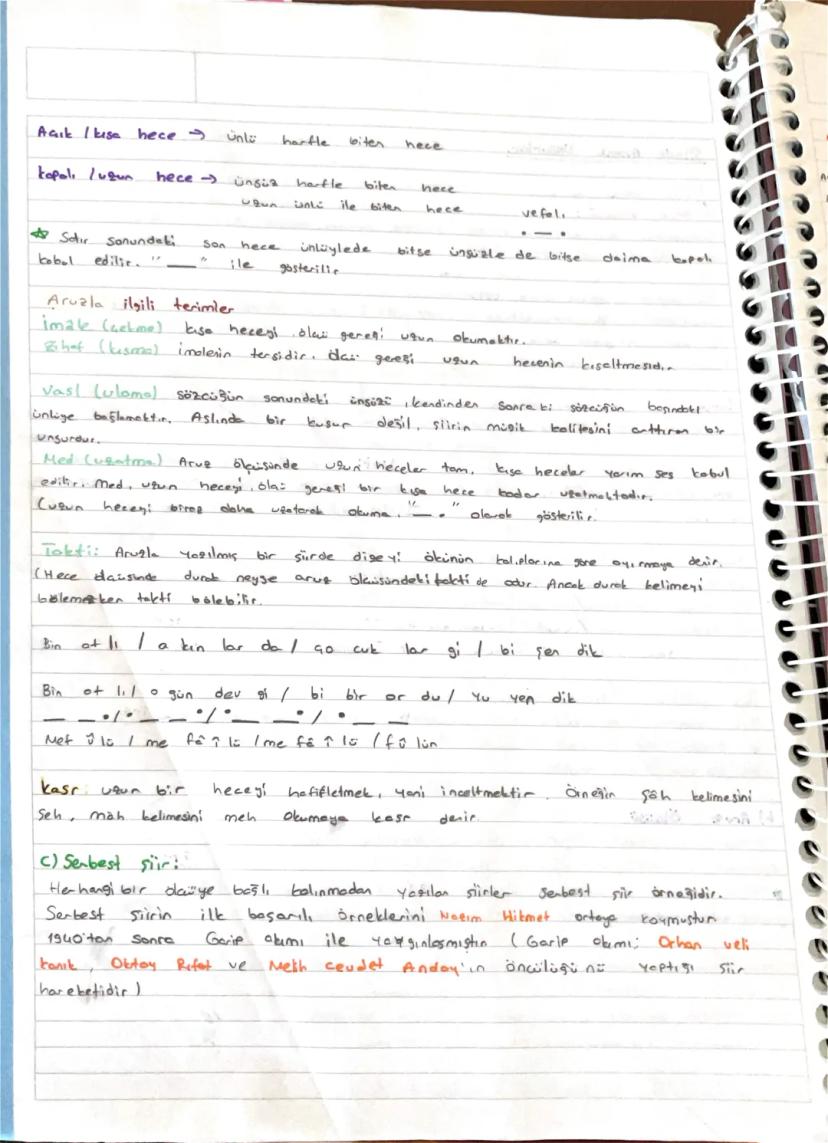 Açık / kısa hece → ünlü harfle biten hece
kapalı / uzun hece → ünsüz harfle biten hece
uzun ünlü ile biten hece
vefalı
. — .
☆ Satır sonundaki son hece ünlüylede bitse ünsüzle de bitse daima kapalı
kabul edilir. "—" ile gösterilir
Aruzla ilgili terimler
İmale (çekme) kısa heceyi ölçü gereği uzun okumaktır.
Zihaf (kısma) imalenin tersidir. Ölçü gereği uzun hecenin kısaltmesidir
Vasl (ulama) sözcüğün sonundaki ünsüzü, kendinden sonraki sözcüğün başındaki
ünlüye bağlamaktır. Aslında bir kusur değil, şiirin müzik kalitesini arttıran bir
unsurdur.
Med (uzatma) Aruz ölçüsünde uzun heceler tam, kısa heceler yarım ses kabul
edilir. Med, uzun heceyi, ölçü gereği bir kısa hece kadar uzatmaktadır.
(uzun heceyi biraz daha uzatarak okuma. "— ." olarak gösterilir.
Takti: Aruzla yazılmış bir şiirde dizeyi ölçünün kalıplarına göre ayırmaya denir.
(Hece ölçüsünde durak neyse aruz ölçüsündeki takti de odur. Ancak durak kelimeyi
bölemezken takti bölebilir.
Bin at lı / a kın lar da / ço cuk lar gi / bi şen dik
Bin at lı / o gün dev gi / bi bir or du / yu yen dik
— — . / . — — . / . — — . / . — —
Mef û lü / me fâ î lü / me fâ î lü / fû lün
kasr: uzun bir heceyi hafifletmek, yani inceltmektir. Örneğin şâh kelimesini
şeh, mâh kelimesini meh okumaya kasr denir.
C) Serbest şiir:
Herhangi bir ölçüye bağlı kalınmadan yazılan şiirler serbest şiir örneğidir.
Serbest şiirin ilk başarılı örneklerini Nazım Hikmet ortaya koymuştur
1940'tan sonra Garip akımı ile yaygınlaşmıştır (Garip akımı; Orhan veli
kanık, Oktay Rıfat ve Melih cevdet Anday'ın öncülüğünü yaptığı şiir
hareketidir)